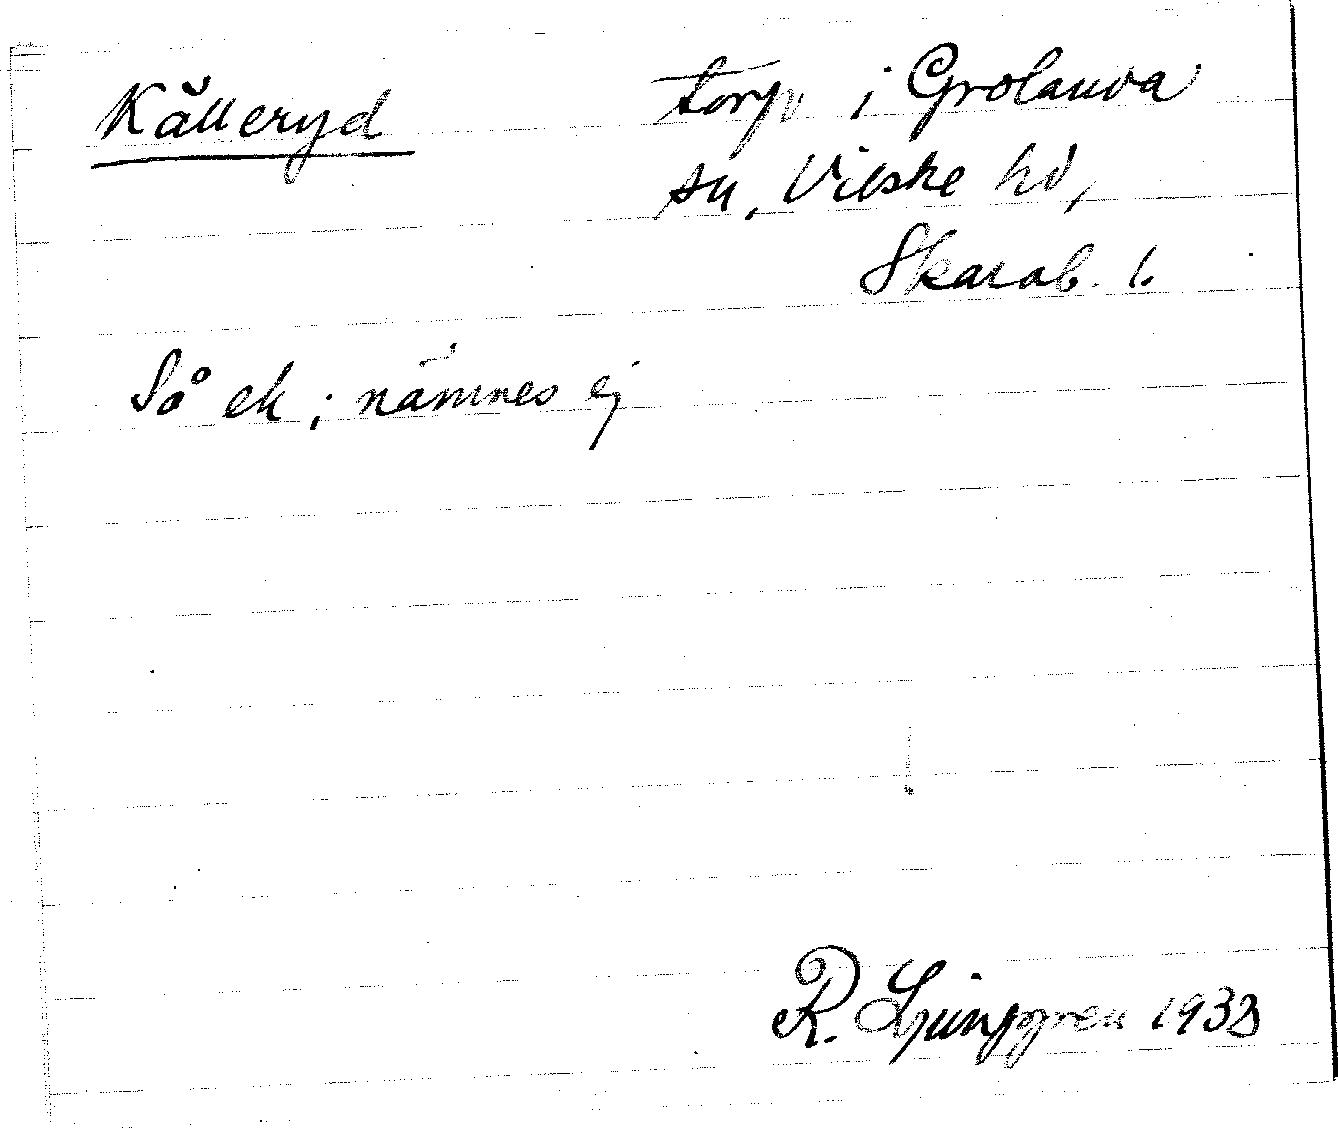 Källeryd
torp i Grolanda
sn, Vilske hd,
Skarab. l.
Så ek; nämnes ej
R. Ljunggren 1938